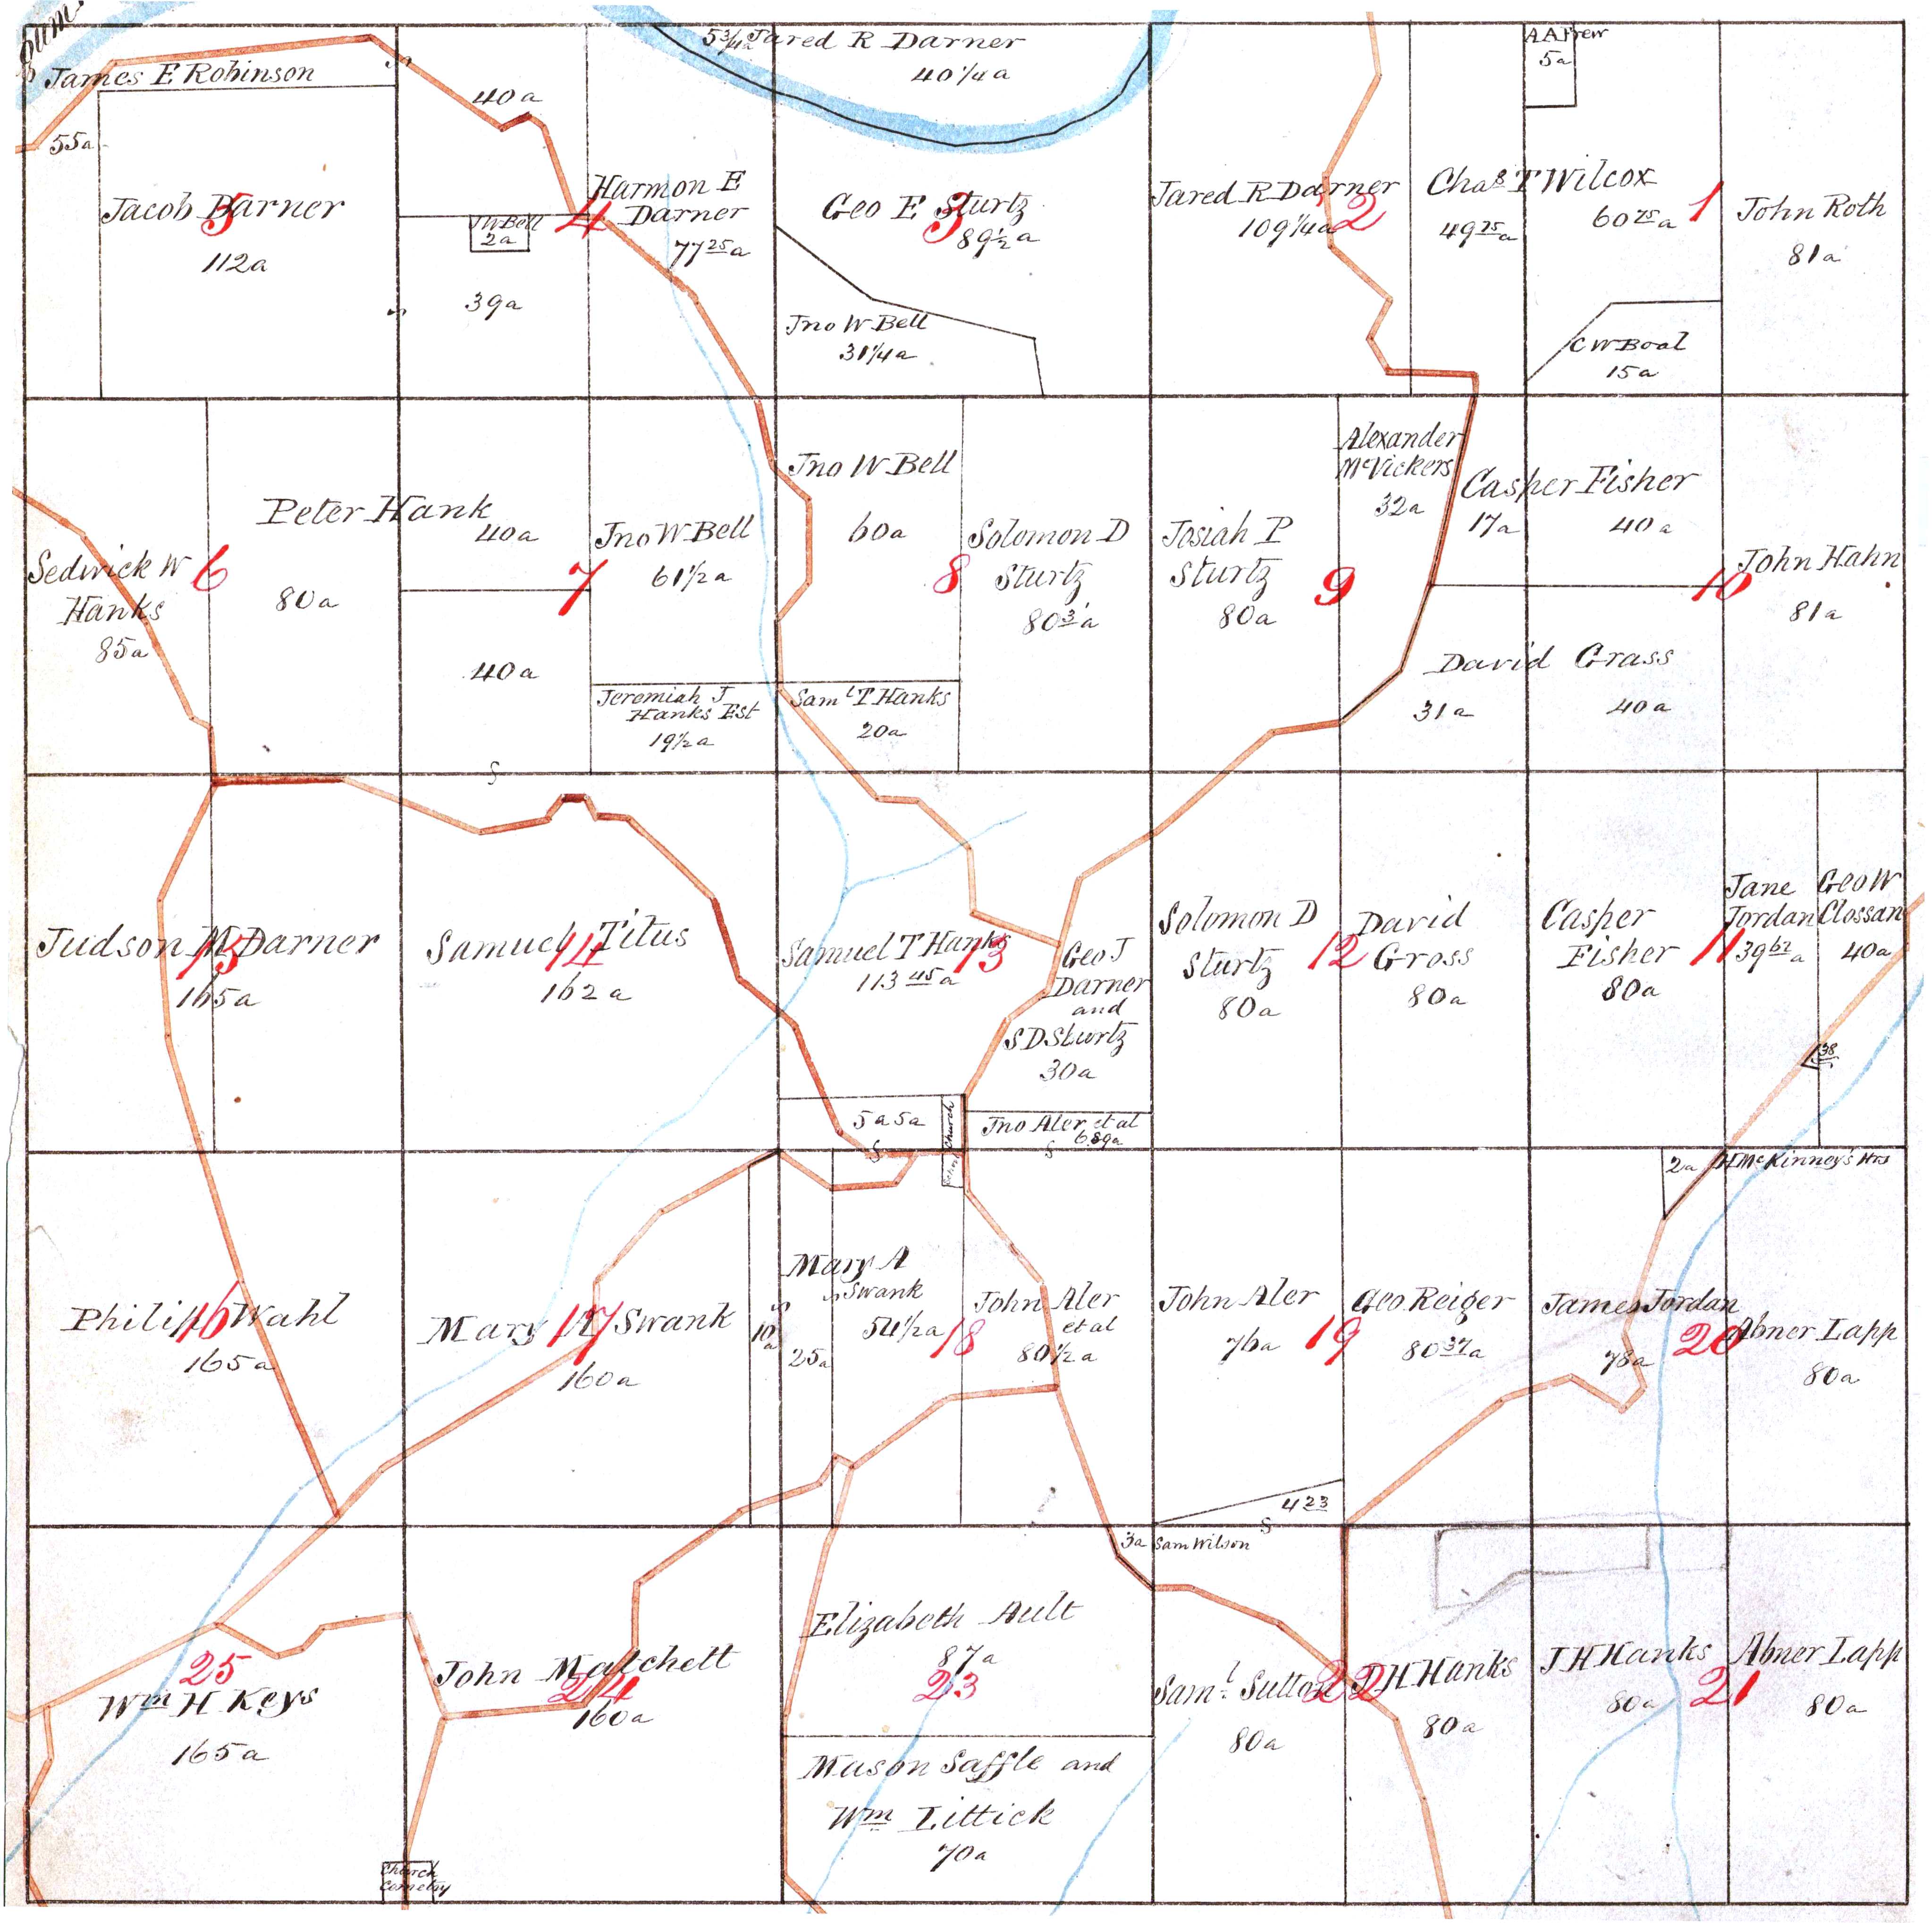 James E Robinson
55a
Jacob Darner
5
112a
40a
J W Bell
2a
39a
4
Harmon E
Darner
77 25 a
5 3/4 a
Jared R Darner
40 1/4 a
Geo E Sturtz
3
89 1/2 a
Jno W Bell
31 1/4 a
Jared R Darner
109 1/4 a
2
Chas T Wilcox
49 25 a
60 75 a
1
A A Frew
5a
C W Boal
15a
John Roth
81a
Sedwick W
Hanks
85a
6
Peter Hank
80a
40a
40a
7
Jno W Bell
61 1/2 a
Jeremiah J
Hanks Est
19 1/2 a
Jno W Bell
60a
8
Saml T Hanks
20a
Solomon D
Sturtz
80 3/4 a
Josiah P
Sturtz
80a
9
Alexander
McVickers
32a
Casper Fisher
17a
40a
David Grass
31a
40a
10
John Hahn
81a
Judson M Darner
15
165a
Samuel Titus
14
162a
Samuel T Hanks
13
113 45 a
5a 5a
Church
Geo J
Darner
and
S D Sturtz
30a
Jno Aler et al
6 89 a
Solomon D
Sturtz
80a
12
David
Gross
80a
Casper
Fisher
80a
11
Jane
Jordan
39 62 a
Geo W
Clossan
40a
38
Philip Wahl
16
165a
Mary A Swank
17
160a
10a
Mary A
Swank
25a
54 1/2 a
18
John Aler
et al
80 1/2 a
John Aler
76a
4 23
19
Geo Reiger
80 37 a
James Jordan
78a
2a
H McKinney's Hrs
20
Abner Lapp
80a
25
Wm H Keys
165a
John Matchett
24
160a
Church
Cemetry
Elizabeth Ault
87a
23
Mason Saffle and
Wm Littick
70a
3a
Sam Wilson
Saml Sutton
80a
22
J H Hanks
80a
J H Hanks
80a
21
Abner Lapp
80a